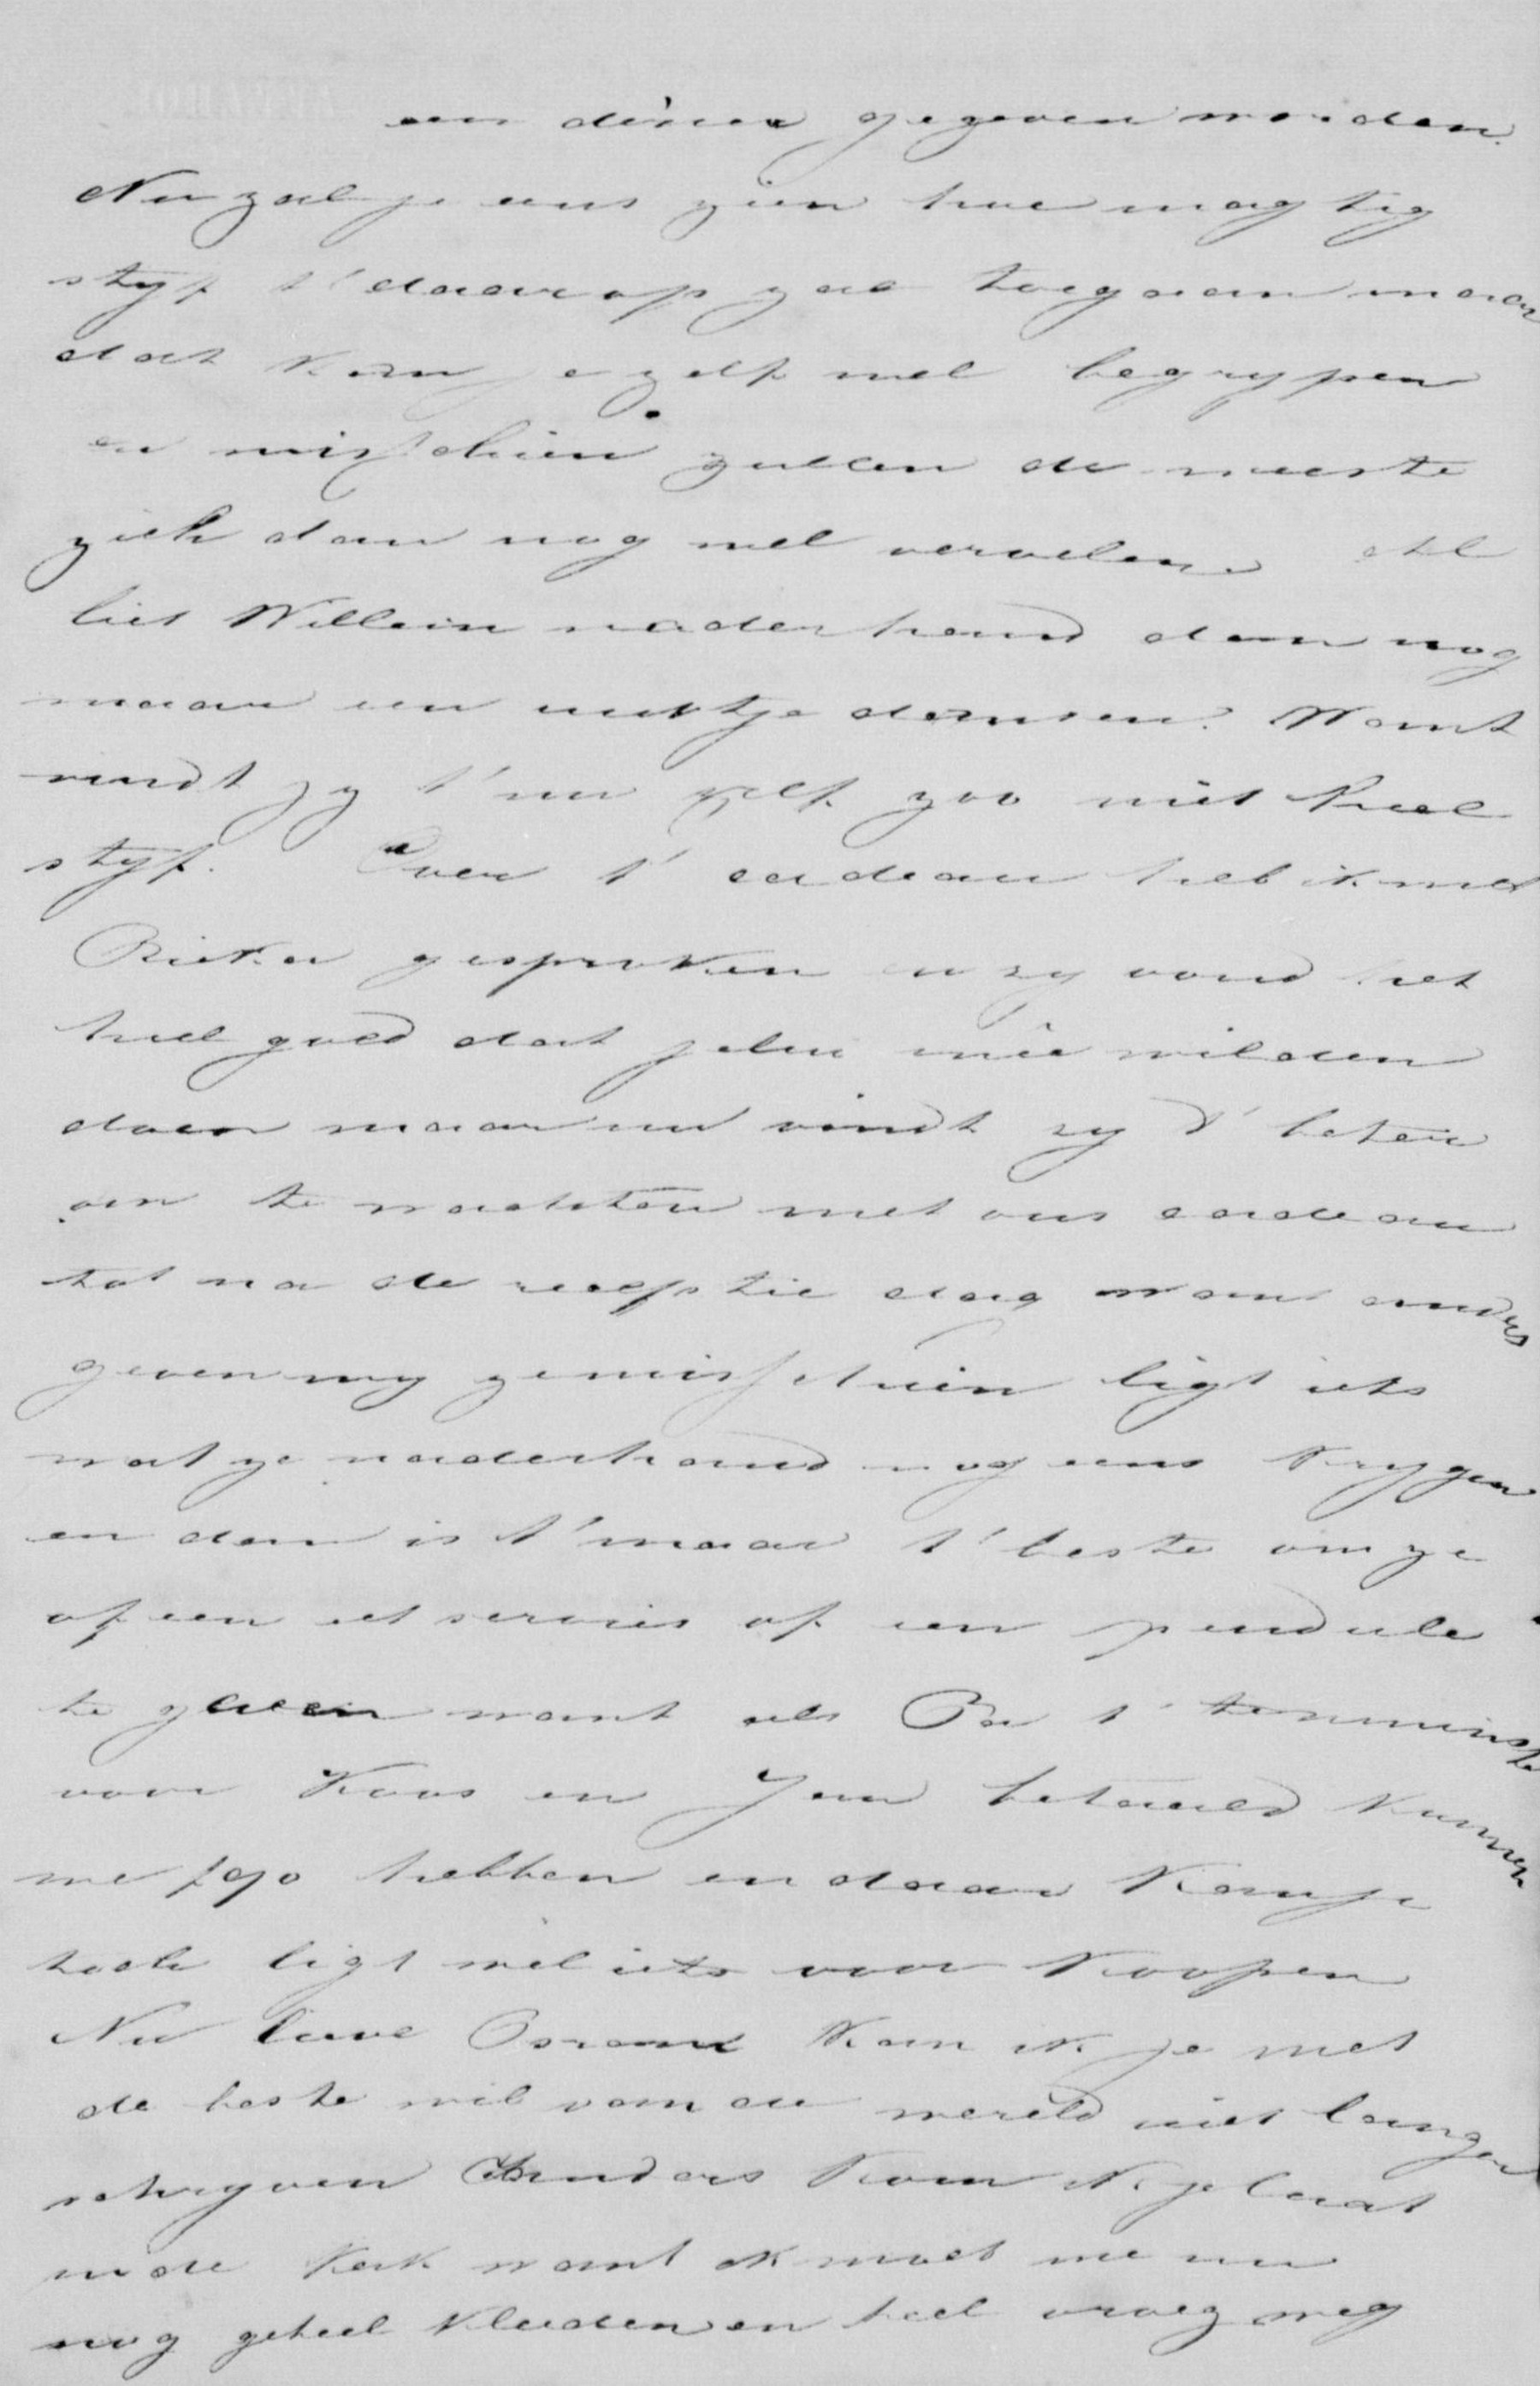 een dîner gegeven worden.
Nu zal je eens zien hoe magtig
styf t' daarop zal toegaan maar
dat kan je zelf wel begrypen
en misschien zullen de meeste
zich dan nog wel vervelen. Al
liet Willem naderhand dan nog
maar een uurtje dansen? Want
vindt jy t' nu zelf zoo niet heel
styf. Over t' cadeau heb ik met
Rieka gesproken en zy vond het
heel goed dat jelui meê wilden
doen maar nu vindt zy t' beter
om te wachten met ons cadeau
tot na de receptie dag want anders
geven wy ze misschien ligt iets
wat ze naderhand nog eens krygen
en dan is t' maar t' beste om ze
of een et servies of een pendule
te geven want als Pa t' tenminste
voor Koos en Jan betaald kunnen
we f90 hebben en daar kan je
toch ligt wel iets voor koopen
Nu lieve kan ik je met
de beste wil van de wereld niet langer
schryven Anders kom ik je laat
in de kerk want ik moet me nu
nog geheel kleeden en heel vroeg weg